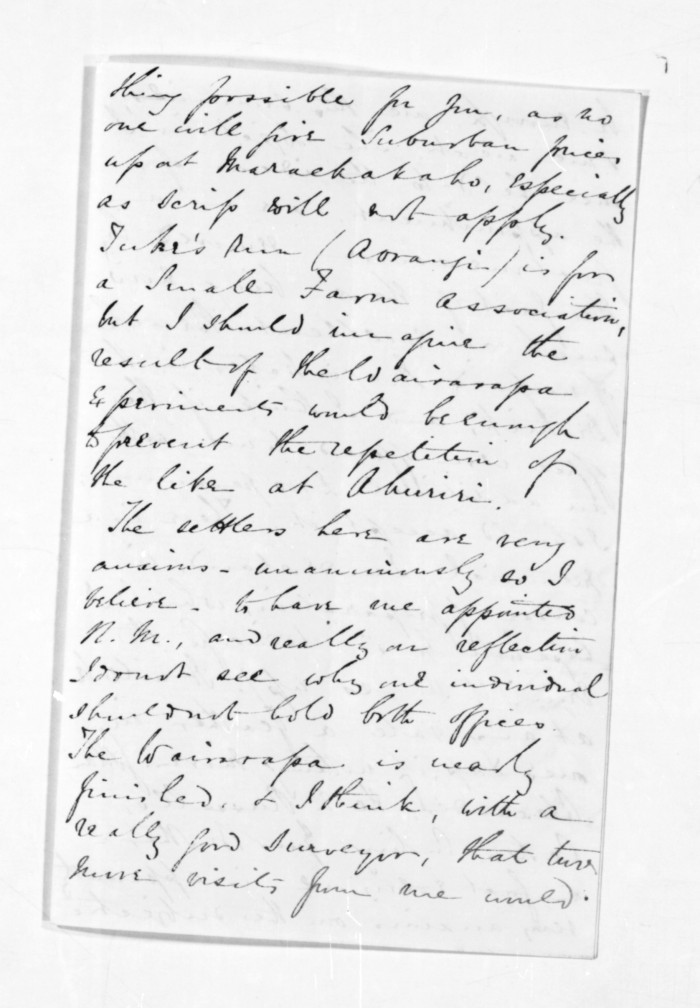 thing possible for you, as no
one will give Suburban prices
up at Maraekakaho, especially
as scrip will not apply.
Tuke's run (Aorangi) is for
a Small Farm Association,
but I should imagine the
result of the Wairarapa
Experiments would be enough
to prevent the repetition of
the like at Ahuriri.
The settlers here are very
anxious - unanimously so I
believe - to have me appointed
R. M., and really on reflection
I do not see why one individual
should not hold both offices
The Wairarapa is nearly
finished, & I think, with a
really good Surveyor, that two
more visits from me would